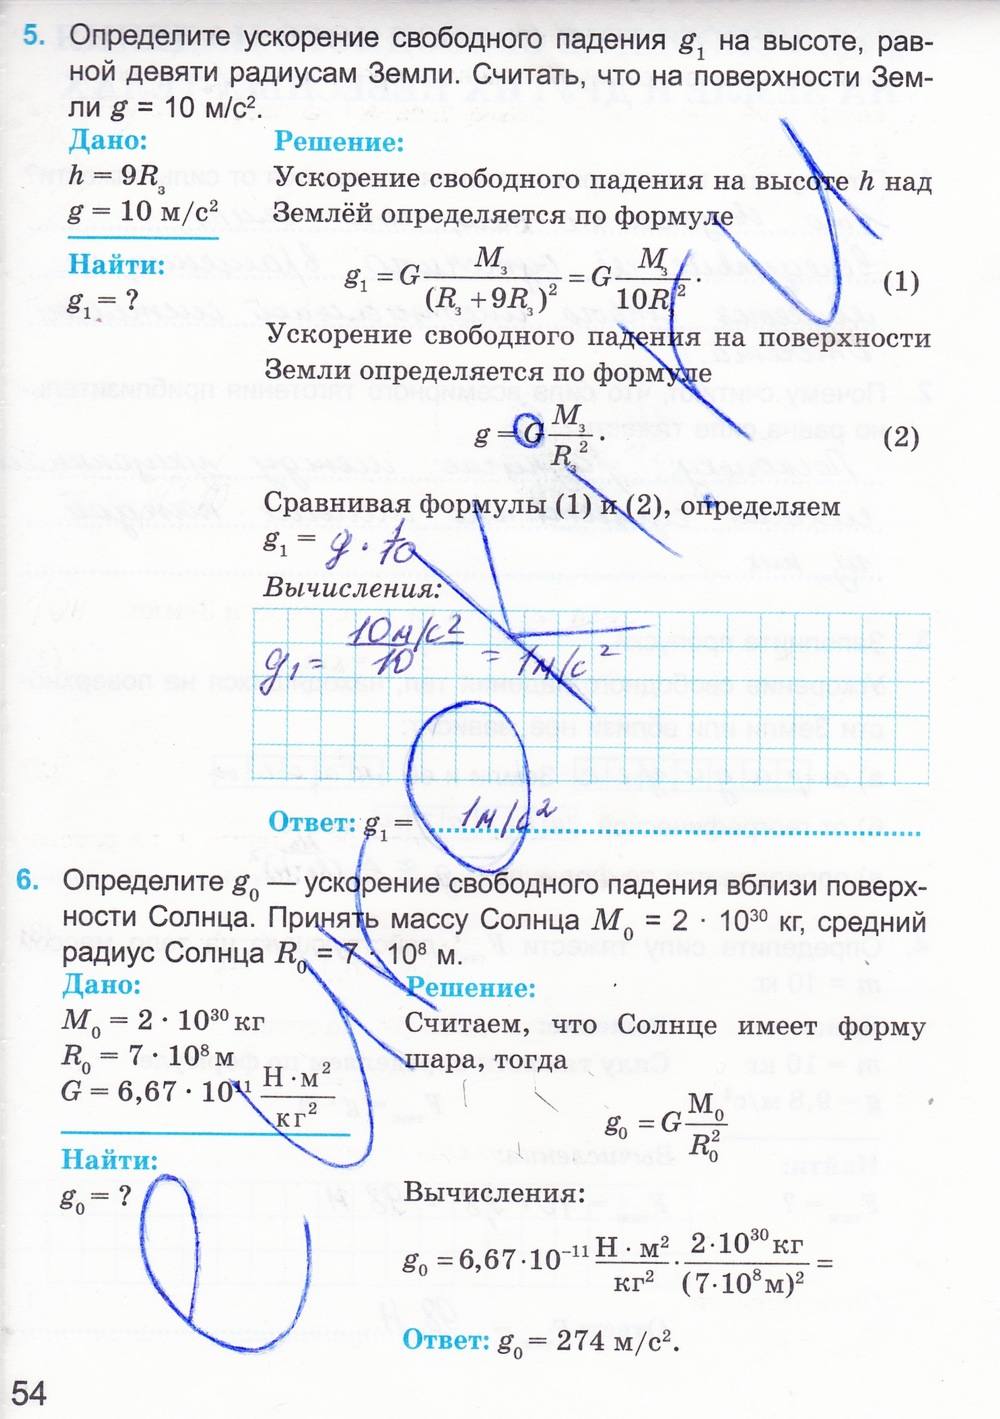 5. Определите ускорение свободного падения g₁ на высоте, рав-
ной девяти радиусам Земли. Считать, что на поверхности Зем-
ли g = 10 м/с².
Дано:
h = 9R₃
g = 10 м/с²
Найти:
g₁ = ?
Решение:
Ускорение свободного падения на высоте h над
Землёй определяется по формуле
g₁ = G M₃/(R₃ + 9R₃)² = G M₃/10R₃². (1)
Ускорение свободного падения на поверхности
Земли определяется по формуле
g = G M₃/R₃². (2)
Сравнивая формулы (1) и (2), определяем
g₁ = g · 1/10
Вычисления:
g₁ = 10 м/с²/10 = 1 м/с²
Ответ: g₁ = 1 м/с²
6. Определите g₀ — ускорение свободного падения вблизи поверх-
ности Солнца. Принять массу Солнца M₀ = 2 · 10³⁰ кг, средний
радиус Солнца R₀ = 7 · 10⁸ м.
Дано:
M₀ = 2 · 10³⁰ кг
R₀ = 7 · 10⁸ м
G = 6,67 · 10¹¹ Н · м²/кг²
Найти:
g₀ = ?
Решение:
Считаем, что Солнце имеет форму
шара, тогда
g₀ = G M₀/R₀²
Вычисления:
g₀ = 6,67 · 10⁻¹¹ Н · м²/кг² · 2 · 10³⁰ кг/(7 · 10⁸ м)² =
Ответ: g₀ = 274 м/с².
54